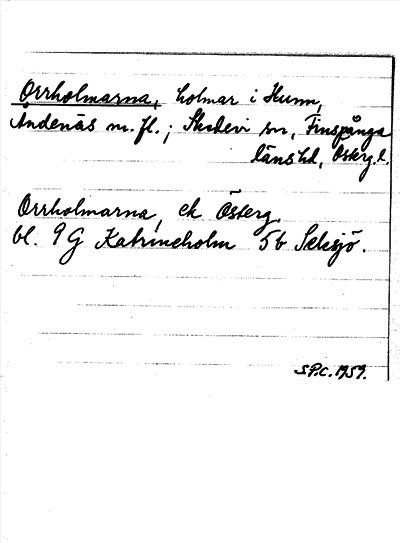 Orrholmarna, holmar i Hunn,
Andenäs m.fl.; Skedevi sn, Finspånga
länshd, Österg.l.
Orrholmarna, ek Österg.
bl. 9G Katrineholm 5b Selesjö.
S.P.C. 1959.